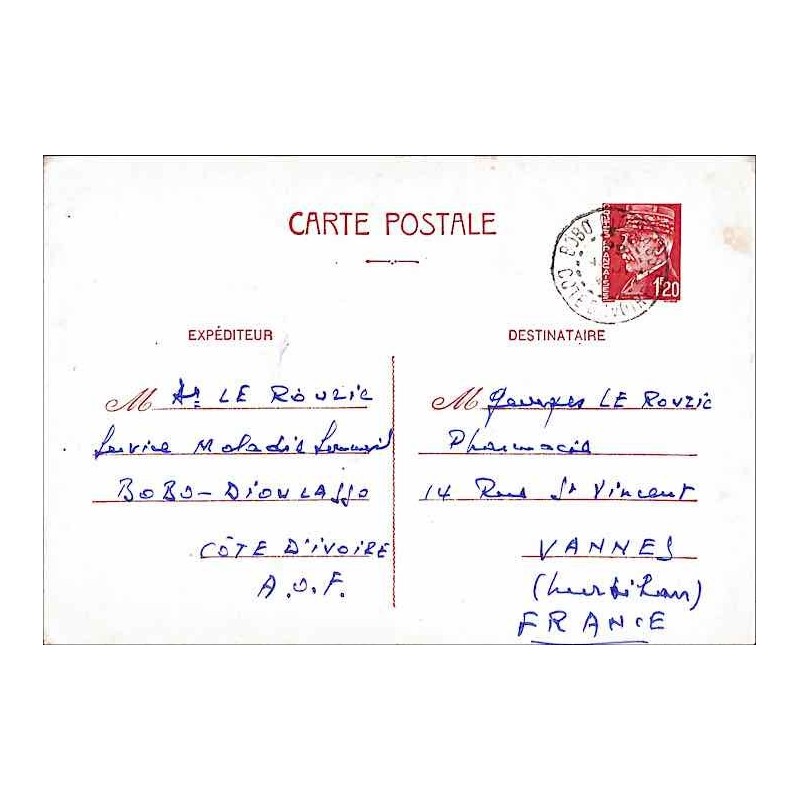 CARTE POSTALE
BOBO
COTE D'IVOIRE
1F20
EXPÉDITEUR
M Ar LE ROUZIC
Service Maladie Sommeil
BOBO-DIOULASSO
CÔTE D'IVOIRE
A.O.F.
DESTINATAIRE
M Georges LE ROUZIC
Pharmacie
14 Rue St Vincent
VANNES
(Morbihan)
FRANCE